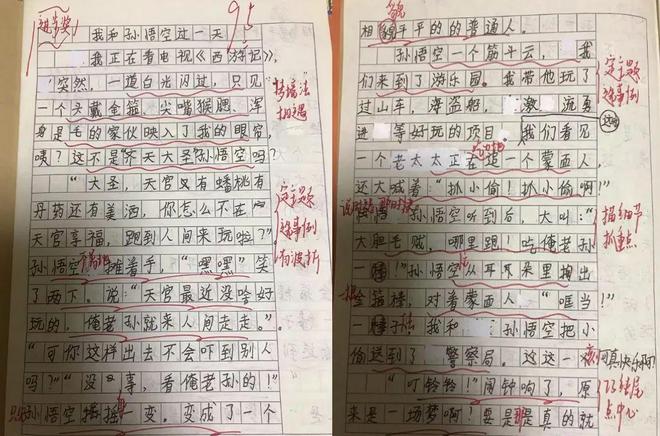 进步奖 95
我和孙悟空过一天
我正在看电视《西游记》，
突然，一道白光闪过，只见
一个头戴金箍、尖嘴猴腮、浑
身是毛的家伙映入了我的眼帘，
咦？这不是“齐天大圣”孙悟空吗？
“大圣，天宫又有蟠桃有
丹药还有美酒，你怎么不在
天宫享福，跑到人间来玩啦？”
孙悟空摊着手，“嘿嘿”笑
了两下。说：“天宫最近没啥好
玩的，俺老孙就来人间走走。”
“可你这样出去不会吓到别人
吗？”“没事，看俺老孙的！”
只见孙悟空摇摇一变，变成了一个
相貌平平的的普通人。
孙悟空一个筋斗云，我
们来到了游乐园。我带他玩了
过山车，海盗船，激流勇
进等好玩的项目。我们看见
一个老太太正在追一个蒙面人，
还大喊着：“抓小偷！抓小偷啊！”
说时迟那时快
孙悟空听到后，大叫：“
大胆毛贼，哪里跑！吃俺老孙
一棒！”孙悟空从耳朵里掏出
金箍棒，对着蒙面人“哐当！”
一棒子！我和孙悟空把小
偷送到了警察局。这这一
“叮铃铃！”闹钟响了，原
来是一场梦啊！要是那是真的就
定主题
选事例
有波折
定主题
选事例
描细节
抓重点
结尾
点中心